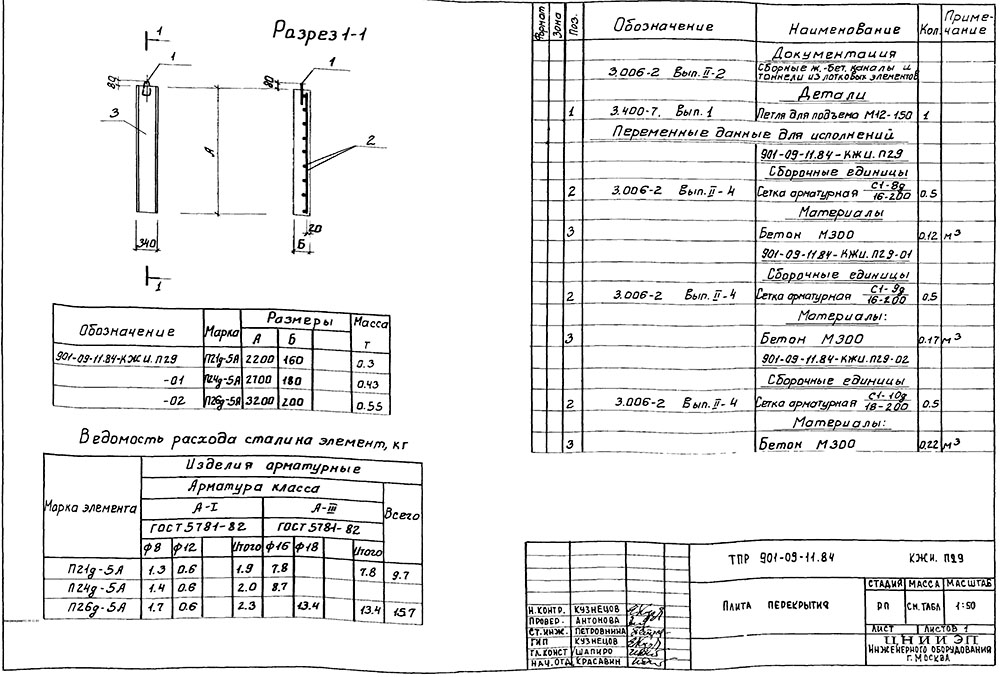 Разрез 1-1
1
1
1
80
80
3
2
А
340
20
Б
1
Обозначение Марка Размеры Масса т
А Б
901-09-11.84-КЖИ.П29 П21д-5А 2200 160 0.3
-01 П24д-5А 2700 180 0.43
-02 П26д-5А 3200 200 0.55
Ведомость расхода стали на элемент, кг
Марка элемента Изделия арматурные
Арматура класса Всего
А-I А-III
ГОСТ 5781-82 ГОСТ 5781-82
Ф8 Ф12 Итого Ф16 Ф18 Итого
П21д-5А 1.3 0.6 1.9 7.8 7.8 9.7
П24д-5А 1.4 0.6 2.0 8.7
П26д-5А 1.7 0.6 2.3 13.4 13.4 15.7
Формат Зона Поз. Обозначение Наименование Кол. Приме-
чание
Документация
3.006-2 Вып. II-2 Сборные ж.-бет. каналы и
тоннели из лотковых элементов
Детали
1 3.400-7. Вып. 1 Петля для подъема М12-150 1
Переменные данные для исполнений
901-09-11.84-КЖИ.П29
Сборочные единицы
2 3.006-2 Вып. II-4 Сетка арматурная С1-8д/16-200 0.5
Материалы
3 Бетон М300 0.12 м³
901-09-11.84-КЖИ.П29-01
Сборочные единицы
2 3.006-2 Вып. II-4 Сетка арматурная С1-9д/16-200 0.5
Материалы:
3 Бетон М300 0.17 м³
901-09-11.84-КЖИ.П29-02
Сборочные единицы
2 3.006-2 Вып. II-4 Сетка арматурная С1-10д/18-200 0.5
Материалы:
3 Бетон М300 0.22 м³
ТПР 901-09-11.84 КЖИ. П29
Плита перекрытия
СТАДИЯ МАССА МАСШТАБ
РП СМ.ТАБЛ 1:50
ЛИСТ ЛИСТОВ 1
Н.КОНТР. КУЗНЕЦОВ
ПРОВЕР. АНТОНОВА
СТ.ИНЖ. ПЕТРОВНИНА
ГИП КУЗНЕЦОВ
ГЛ.КОНСТ ШАПИРО
НАЧ.ОТД КРАСАВИН
ЦНИИЭП
ИНЖЕНЕРНОГО ОБОРУДОВАНИЯ
Г. МОСКВА